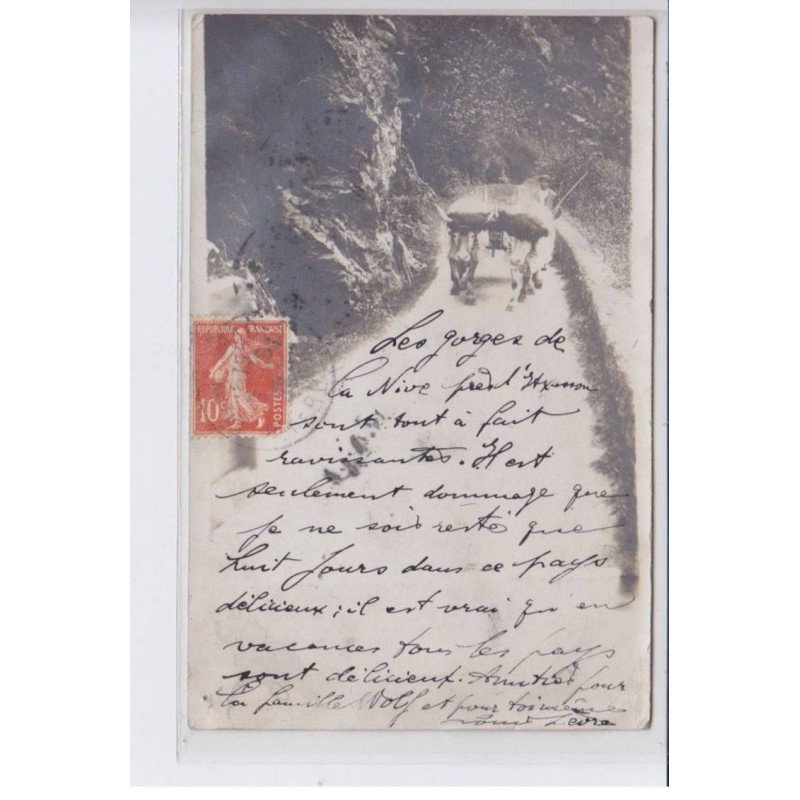 Les gorges de
la Nive près d'Itxassou
sont tout à fait
ravissantes. Il est
seulement dommage que
je ne sois resté que
huit jours dans ce pays
délicieux ; il est vrai qu'en
vacances tous les pays
sont délicieux. Amitiés pour
la famille Wolf et pour toi même
REPUBLIQUE FRANÇAISE
10c
POSTES